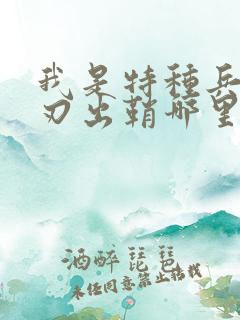 我是特种兵
刃出鞘哪里
酒醉琵琶
未经同意禁止转载